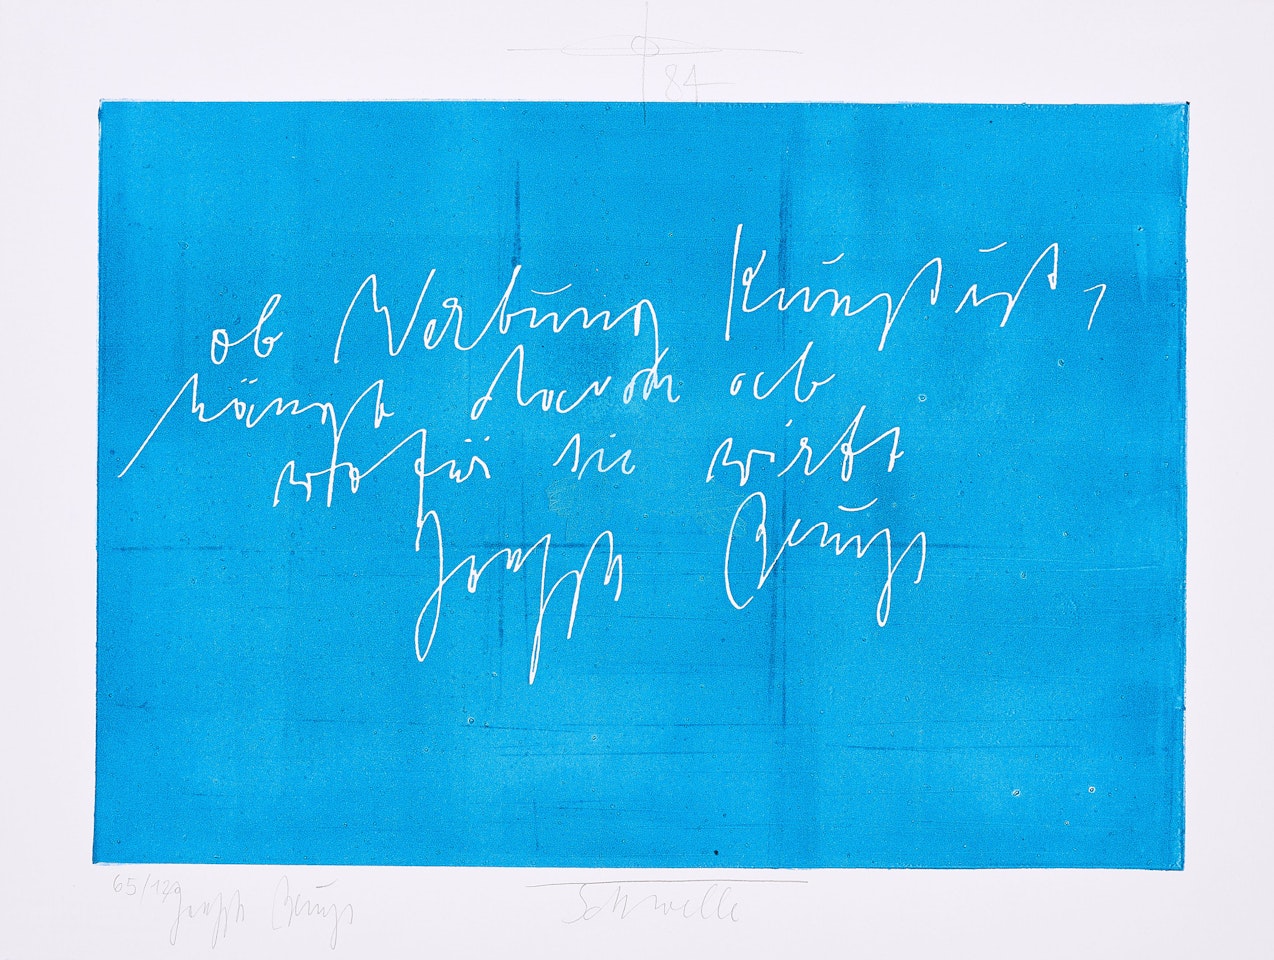 84
ob Werbung Kunst ist,
hängt davon ab
wofür sie wirbt
Joseph Beuys
65/120 Joseph Beuys
Schwelle